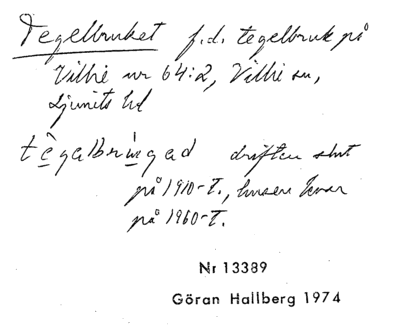 Tegelbruket f.d. tegelbruk på
Villie nr 64:2, Villie sn,
Ljunits hd
tègalbrⱳngad driften slut
på 1910-t., husen kvar
på 1960-t.
Nr 13389
Göran Hallberg 1974